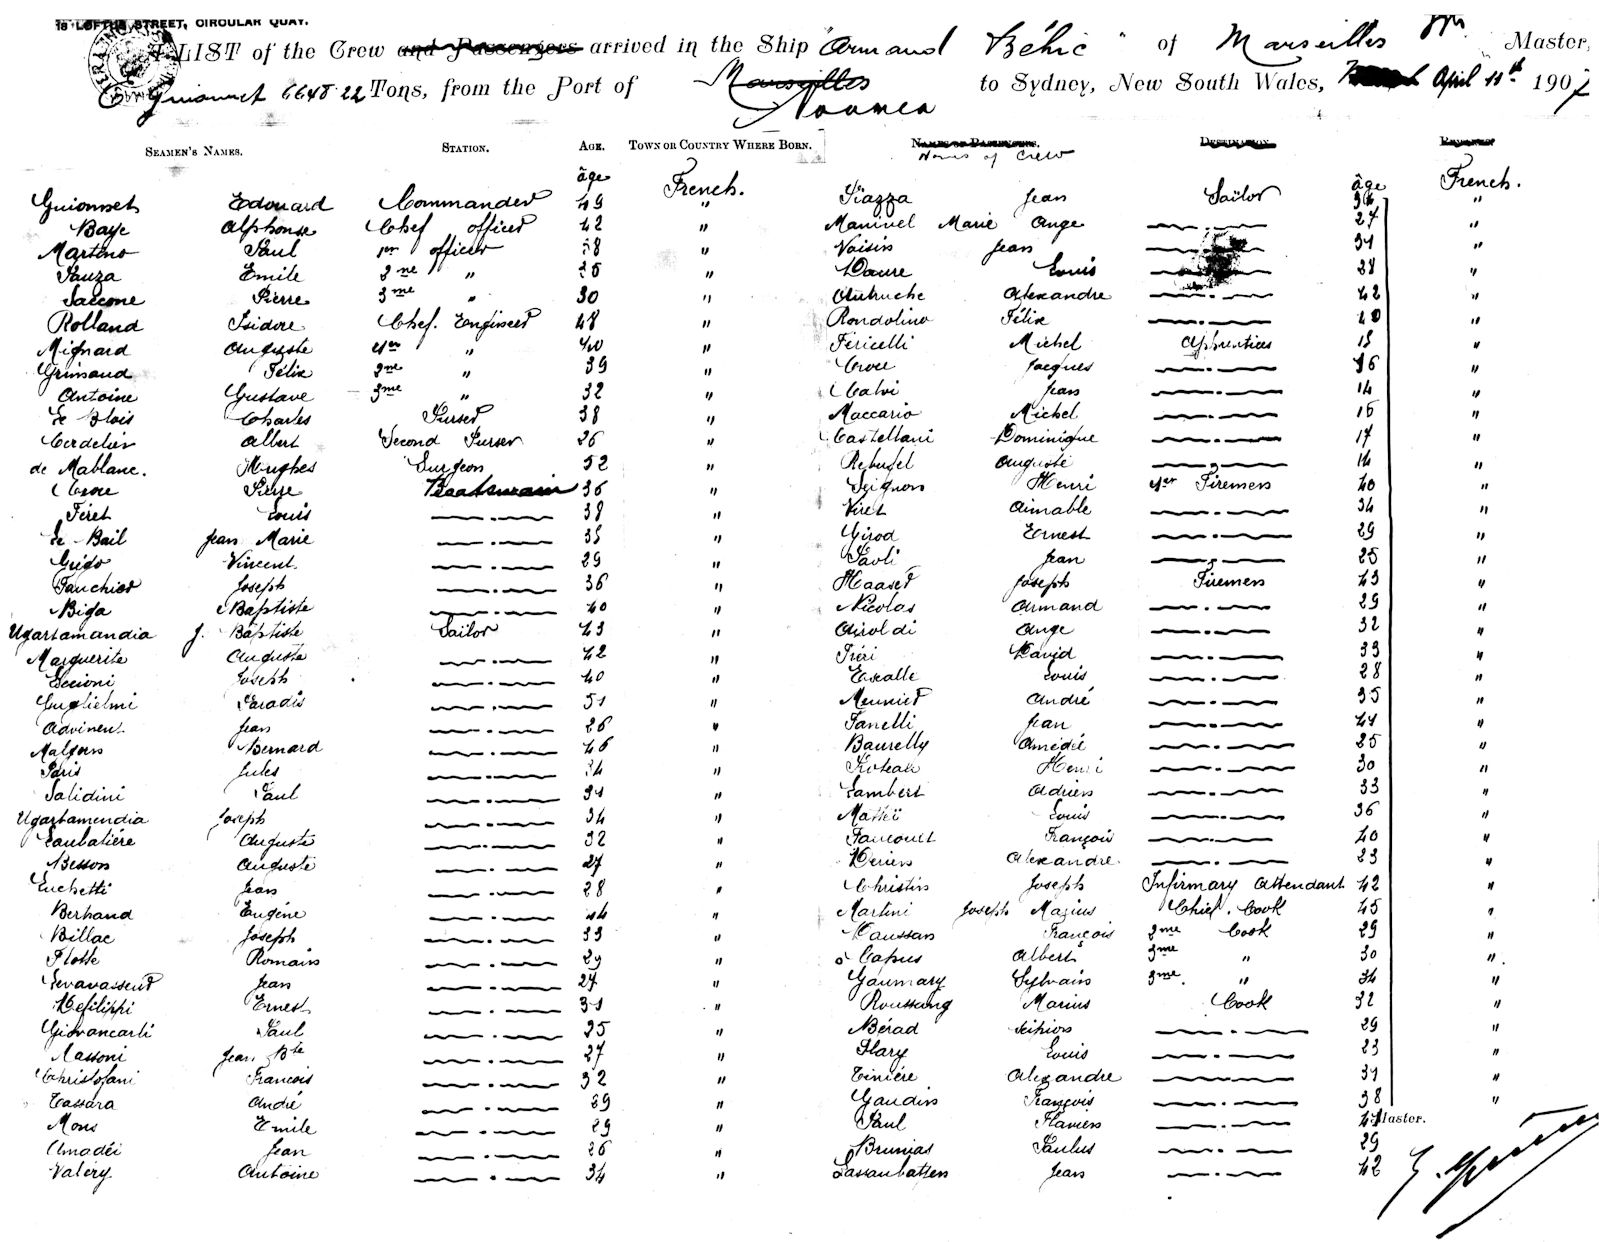 18 LOFTUS STREET, CIRCULAR QUAY.
A LIST of the Crew and Passengers arrived in the Ship "Armand Béhic" of Marseilles Master,
E Guionnet 6648.22 Tons, from the Port of Marseilles Noumea to Sydney, New South Wales, April 11th 1907
SEAMEN'S NAMES. STATION. AGE. TOWN OR COUNTRY WHERE BORN. NAMES OF PASSENGERS. DESTINATION. REMARKS
Names of Crew
âge French. âge French.
Guionnet Edouard Commander 49 " Piazza Jean Saïlor "
Baye Alphonse Chef officer 42 " Manivel Marie Ange —.— 27 "
Martino Paul 1er officer 38 " Voisin Jean —.— 31 "
Pauza Emile 2me " " Daure Louis —.— 28 "
Saccone Pierre 3me " 30 " Autruche Alexandre —.— 42 "
Rolland Isidore Chef. Engineer 48 " Rondolino Félix —.— 40 "
Mignard Auguste 1er " 40 " Pericelli Michel Apprentices 15 "
Grimaud Félix 2me " 39 " Croce Jacques —.— 16 "
Antoine Gustave 3me " 32 " Calvi Jean —.— 14 "
Le Blois Charles Purser 38 " Maccario Michel —.— 16 "
Cordelier Albert Second Purser 26 " Castellani Dominique —.— 17 "
de Mablanc. Hughes Surgeon 52 " Rebufel Auguste —.— 14 "
Croce Pierre Boatswain 36 " Seignon Henri 1er Firemen 40 "
Féret Louis —.— 38 " Viret Aimable —.— 34 "
Le Bail Jean Marie —.— 35 " Girod Ernest —.— 29 "
Grigo Vincent —.— 29 " Paoli Jean —.— 25 "
Fauchier Joseph —.— 36 " Haaser Joseph Firemen 43 "
Biga Baptiste —.— 40 " Nicolas Armand —.— 29 "
Ugartamandia J. Baptiste Saïlor 43 " Airoldi Ange —.— 32 "
Marguerite Auguste —.— 42 " Fréri David —.— 39 "
Eccioni Joseph —.— 40 " Escalle Louis —.— 28 "
Guglielmi Paradis —.— 51 " Meunier André —.— 35 "
Advinent Jean —.— 26 " Fanelli Jean —.— 41 "
Bernard —.— 46 " Baurelly Amédée —.— 25 "
Paris Jules —.— 34 " Henri —.— 30 "
Salidini Paul —.— 31 " Lambert Adrien —.— 33 "
Ugartamendia Joseph —.— 34 " Matteï Louis —.— 36 "
Laubatiére Auguste —.— 32 " François —.— 40 "
Besson Auguste —.— 27 " Alexandre —.— 23 "
Luchetti Jean —.— 28 " Christin Joseph Infirmary Attendant 42 "
Bertrand Eugéne —.— 44 " Martini Joseph Marius Chief. Cook 45 "
Billac Joseph —.— 33 " Daussan François 2me Cook 29 "
Flotte Romain —.— 29 " Capus Albert 3me " 30 "
Levavasseur Jean —.— 27 " Gaumary Sylvain 3me " 34 "
Defilippi Ernest —.— 31 " Roussang Marius Cook 32 "
Giovancarli Paul —.— 25 " Bérad Scipion —.— 29 "
Massoni Jean Bte —.— 27 " Flary Louis —.— 23 "
Christofani Francois —.— 32 " Tiniére Alexandre —.— 31 "
Tassara André —.— 29 " Gaudin François —.— 38 "
Mons Emile —.— 29 " Paul Flavien —.— 41 Master.
Amadéi Jean —.— 26 " Brunias Paulus —.— 29
Valéry Antoine —.— 34 " Lassaubatten Jean —.— 42